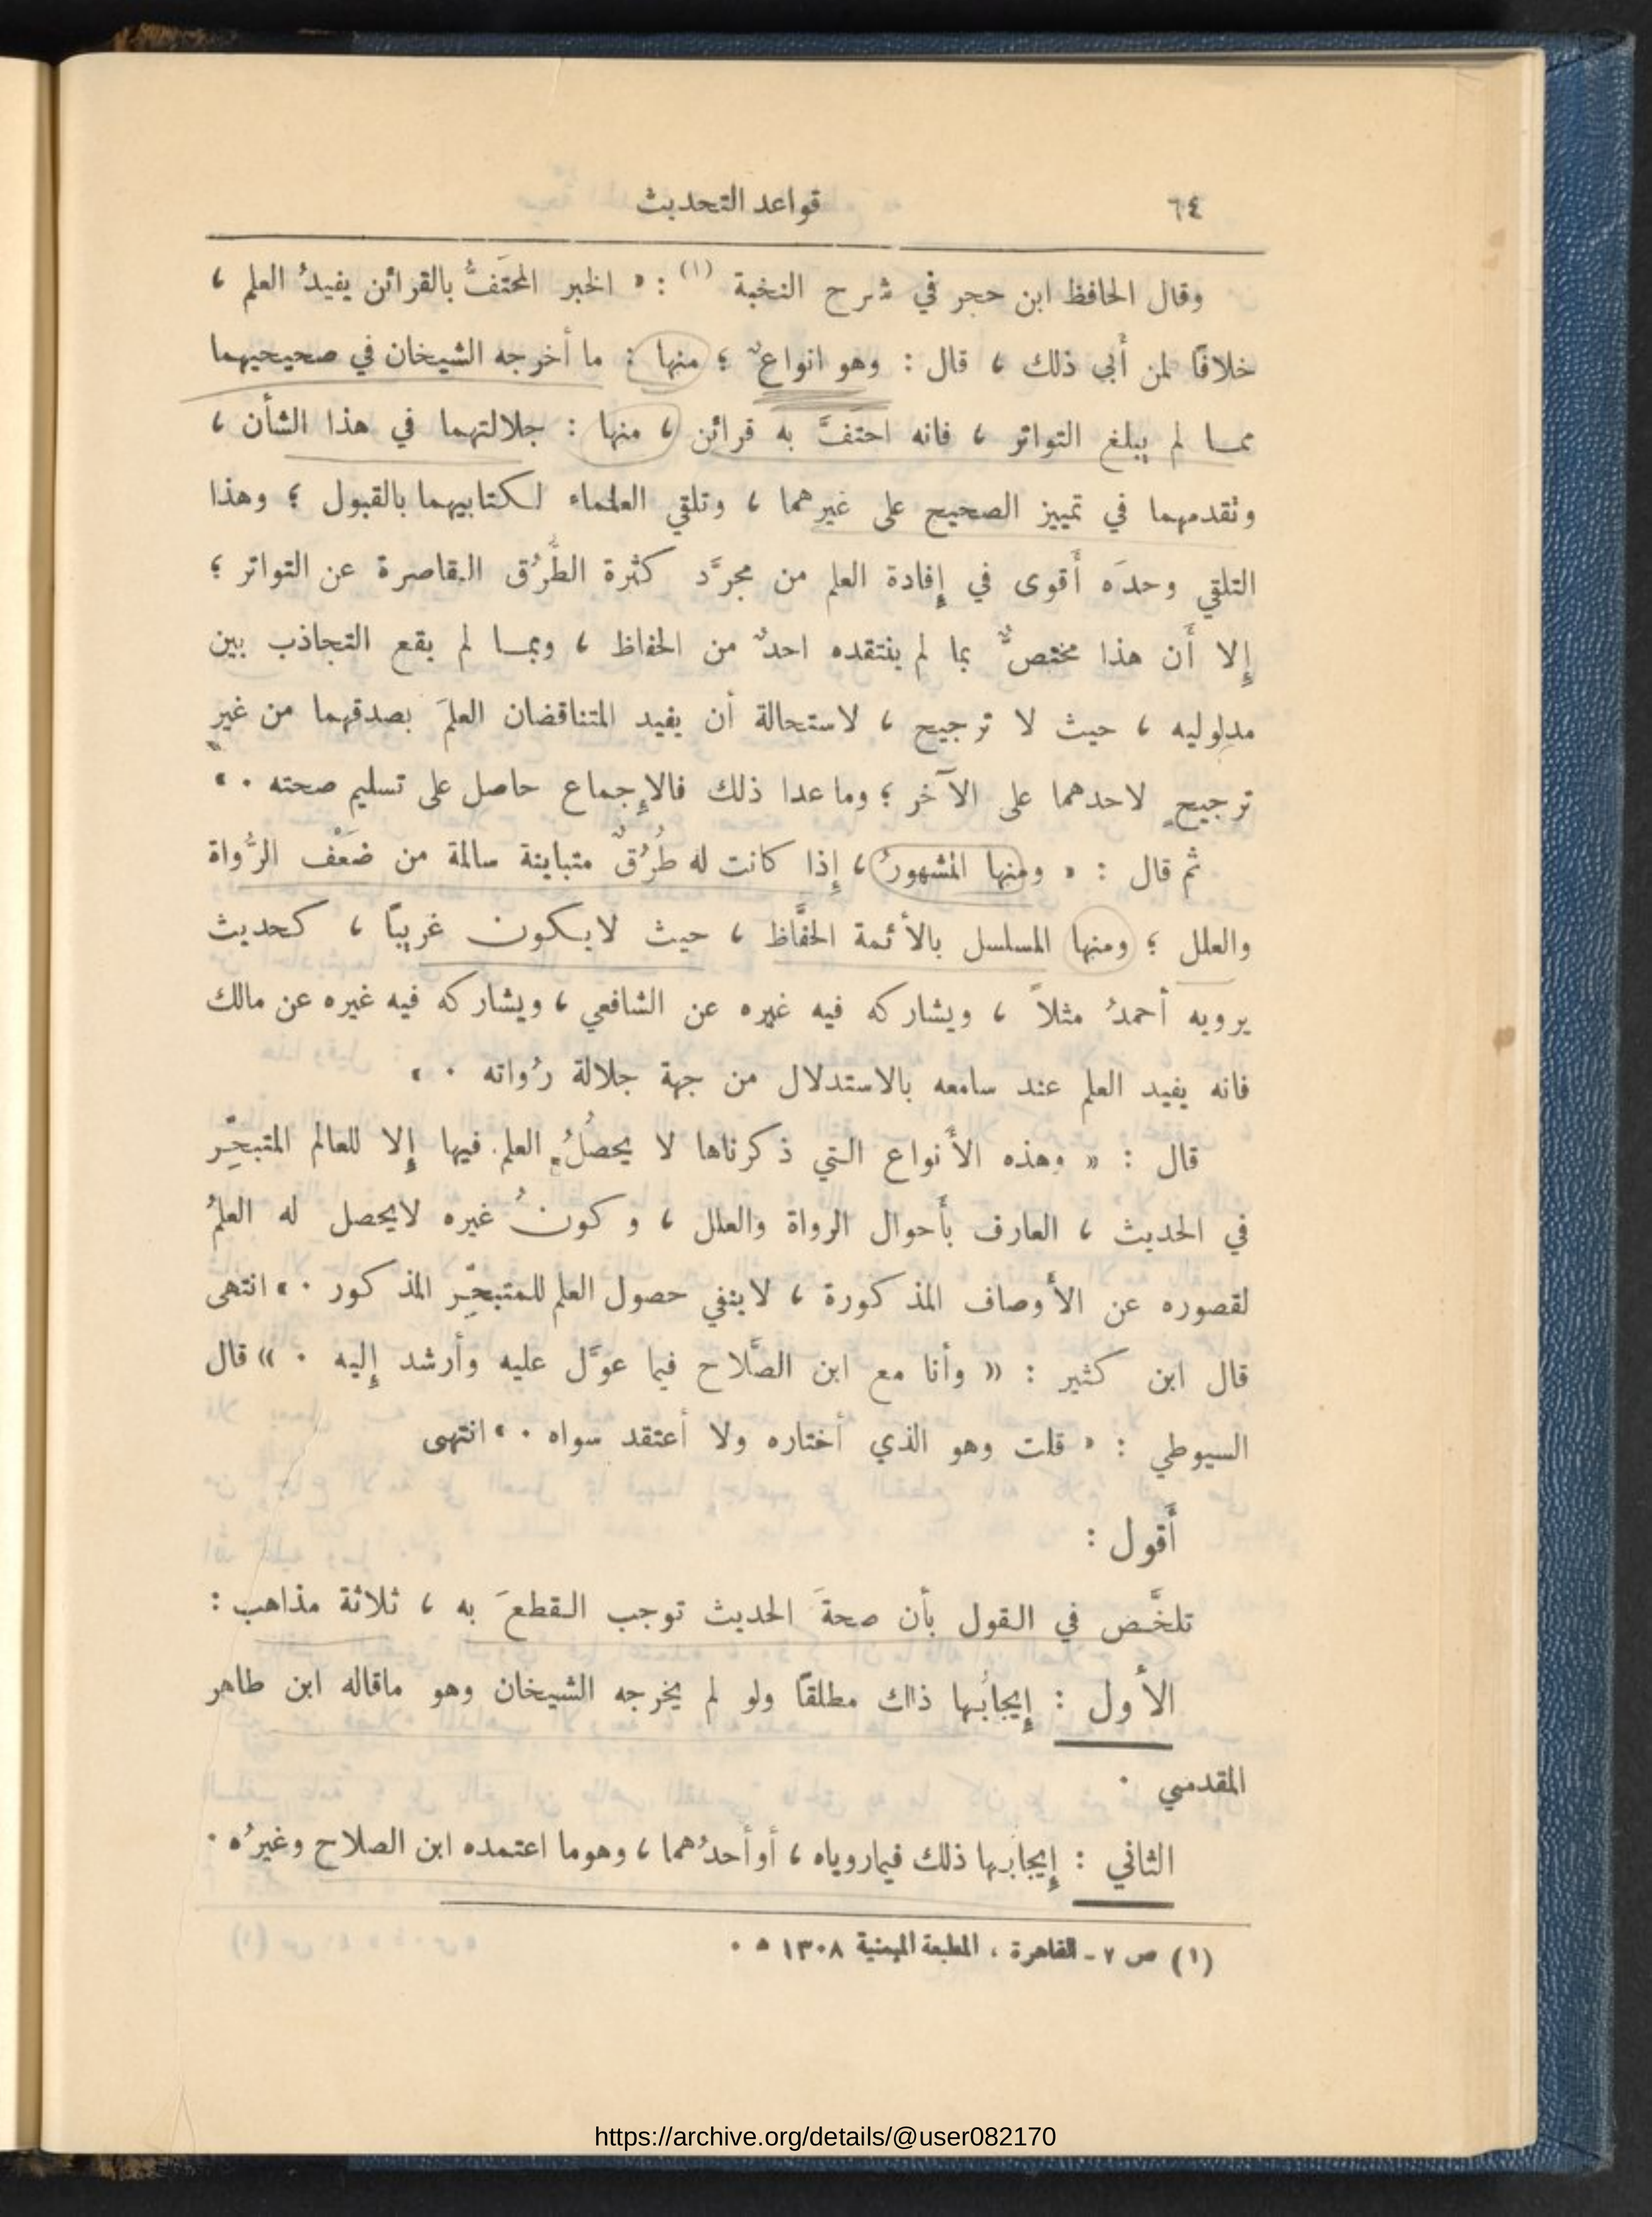 ٦٤ قواعد التحديث
وقال الحافظ ابن حجر في شرح النخبة (١) : « الخبر المحتَفُّ بالقرائن يفيدُ العلم ،
خلافًا لمن أَبى ذلك ، قال : وهو انواعٌ ؛ منها : ما أخرجه الشيخان في صحيحيهما
ممـا لم يبلغ التواتر ، فانه احتَفَّ به قرائن ، منها : جلالتهما في هذا الشأن ،
وتقدمهما في تمييز الصحيح على غيرهما ، وتلقي العلماء لـكتابيهما بالقبول ؛ وهذا
التلقي وحدَه أَقوى في إِفادة العلم من مجرَّد كثرة الطُّرُق القاصرة عن التواتر ؛
إِلا أَن هذا مختصٌّ بما لم ينتقده احدٌ من الحفاظ ، وبمـا لم يقع التجاذب بين
مدلوليه ، حيث لا ترجيح ، لاستحالة أن يفيد المتناقضان العلمَ بصدقهما من غير
ترجيحٍ لاحدهما على الآخر ؛ وما عدا ذلك فالاٍجماع حاصل على تسليم صحته . »
ثم قال : « ومنها المشهورُ ، إِذا كانت له طُرُقٌ متباينة سالمة من ضَعْف الرُّواة
والعلل ؛ ومنها المسلسل بالأئمة الحفَّاظ ، حيث لايـكون غريبًا ، كحديث
يرويه أحمدُ مثلاً ، ويشاركه فيه غيره عن الشافعي ، ويشاركه فيه غيره عن مالك
فانه يفيد العلم عند سامعه بالاستدلال من جهة جلالة رُواته . »
قال : « وهذه الأَنواع التي ذكرناها لا يحصُلُ العلم فيها إِلا للعالم المتبحِّر
في الحديث ، العارف بأَحوال الرواة والعلل ، وكونُ غيره لايحصل له العلمُ
لقصوره عن الأَوصاف المذكورة ، لاينفي حصول العلم للمتبحِّر المذكور . » انتهى
قال ابن كثير : « وأنا مع ابن الصَّلاح فيما عوَّل عليه وأرشد إِليه . » قال
السيوطي : « قلت وهو الذي أختاره ولا أعتقد سواه . » انتهى
أَقول :
تلخَّص في القول بأن صحةَ الحديث توجب القطعَ به ، ثلاثة مذاهب :
الأَول : إِيجابُها ذلك مطلقًا ولو لم يخرجه الشيخان وهو ماقاله ابن طاهر
المقدسي .
الثاني : إِيجابها ذلك فيمارواياه ، أوأحدُهما ، وهوما اعتمده ابن الصلاح وغيرُه .
(١) ص ٧ - القاهرة ، المطبعة الميمنية ١٣٠٨ ه .
https://archive.org/details/@user082170